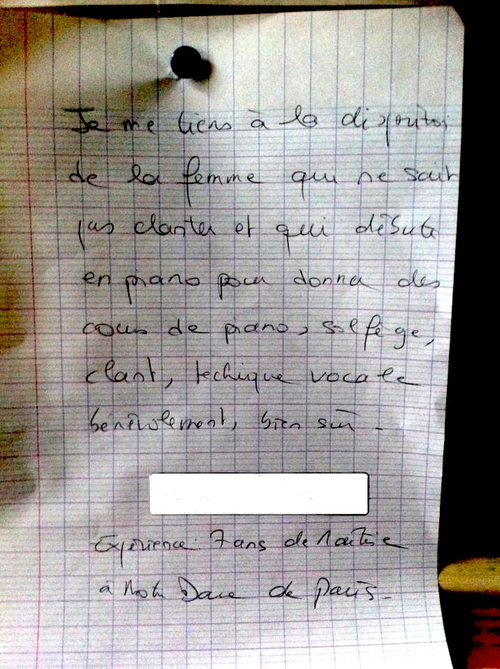 Je me tiens à la disposition
de la femme qui ne sait
pas chanter et qui débute
en piano pour donner des
cours de piano, solfège,
chant, techique vocale
bénévolement, bien sûr.
Expérience : 7 ans de Maîtrise
a Notre Dame de Paris.